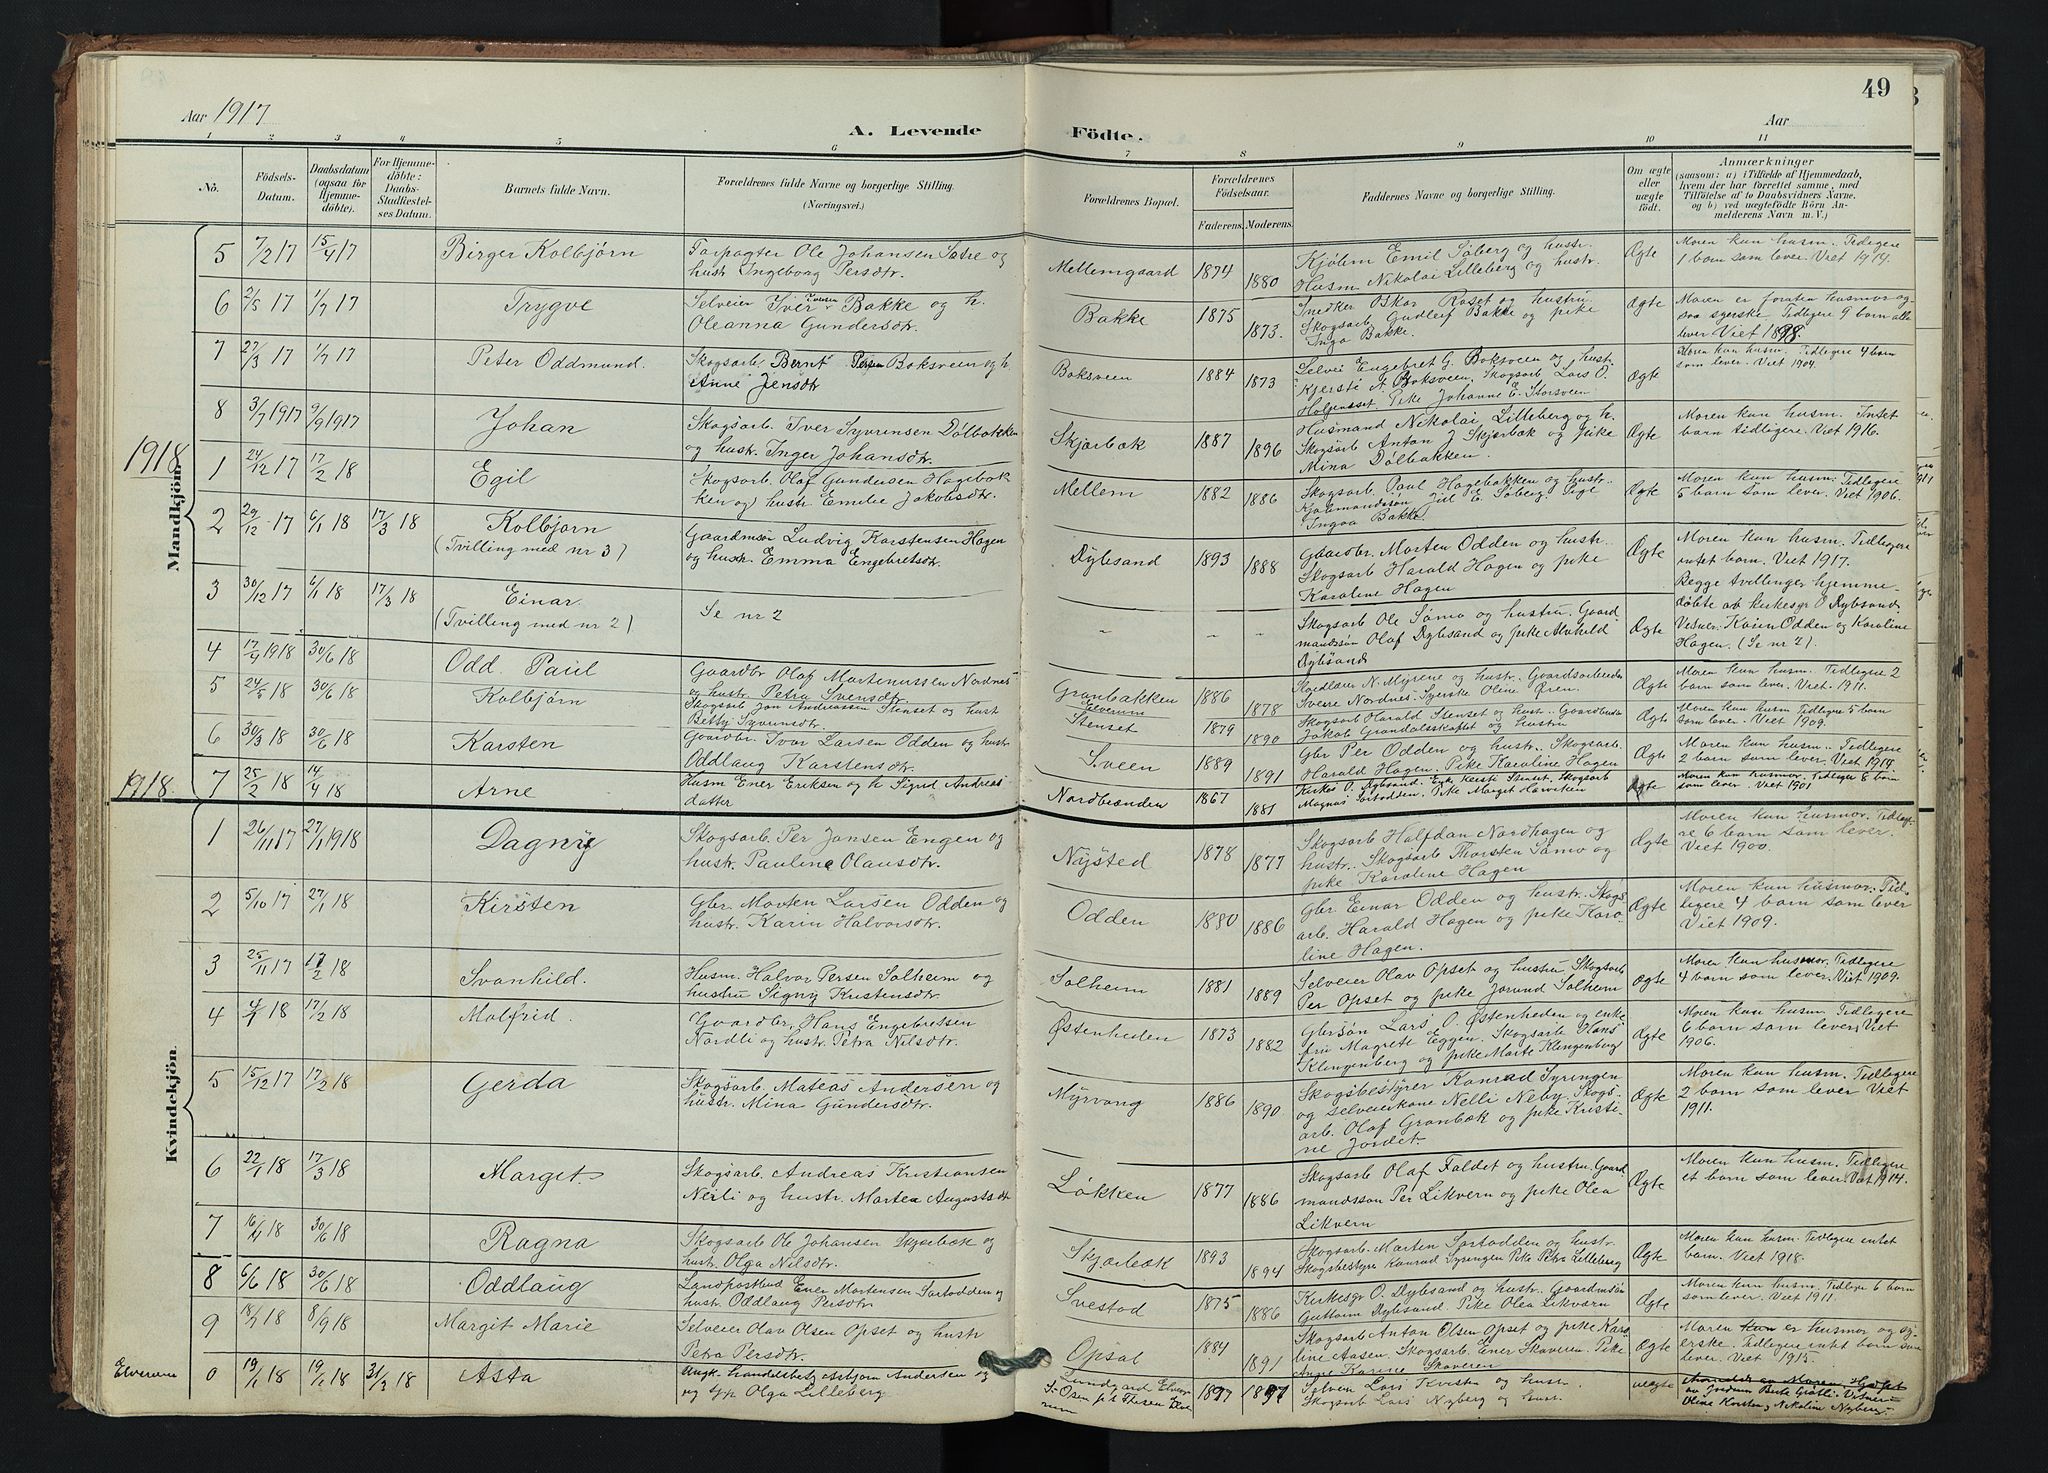 49
Aar 1917
A. Levende Födte.
Aar
1 2 3 4 5 6 7 8 9 10 11
Nö.
Födsels-Datum.
Daabsdatum (ogsaa for Hjemmedöbte).
For Hjemmedöbte: Daabs-Stadfæstelses Datum.
Barnets fulde Navn.
Forældrenes fulde Navne og borgerlige Stilling. (Næringsvei.)
Forældrenes Bopæl.
Forældrenes Födselsaar.
Faderens. Moderens.
Faddernes Navne og borgerlige Stilling.
Om ægte eller uægte födt.
Anmærkninger
(saasom: a) i Tilfælde af Hjemmedaab, hvem der har forrettet samme, med Tilföielse af to Daabsvidners Navne. og b) ved uægtefödte Börn Anmelderens Navn m. V.)
Mandkjön.
5 7/2 17 15/4 17 Birger Kolbjörn Forpagter Ole Johansen Sætre og hustr. Ingeborg Persdtr. Mellemgaard 1874 1880 Kjølem Emil Søberg og hustr. Husm. Nikolai Lilleberg og hustr. Ægte Moren kun husm. Tidligere 1 barn som lever. Viet 1914.
6 2/5 17 1/7 17 Trygve Selveier Iver Iversen Bakke og h. Oleanna Gundersdtr. Bakke 1875 1873. Snedker Oskar Raset og hustru Skogsarb. Gudleif Bakke og pike Inga Bakke. Ægte Moren er foruten husmor ogsaa syerske. Tidligere 9 barn alle lever Viet 1898.
7 27/3 17 1/7 17 Peter Oddmund. Skogsarb. Bernt Persen Boksveen og h. Anne Jensdtr Boksveen 1884 1873 Selvei Engebret G. Boksveen og hustr. Kjersti A Boksveen. Skogsarb Lars O. Holgenset. Pike Johanne E. Storsveen Ægte Moren kun husm. Tidligere 4 barn som lever. Viet 1904.
8 3/7 1917 9/9 1917 Johan Skogsarb. Iver Syversen Dølbakken og hustr. Inger Johansdtr. Skjærbæk 1887 1896 Husmand Nikolai Lilleberg og h. Skogsarb Anton J. Skjærbæk og pike Mina Dølbakken. Ægte Moren kun husm. Intet barn tidligere. Viet 1916.
1918
1 24/12 17 17/2 18 Egil Skogsarb. Olaf Gundersen Hagebakken og hustr. Emilie Jakobsdtr. Mellem 1882 1886 Skogsarb. Paul Hagebakken og hustr. Ingoa Bakke. Ægte Moren kun husm. Tidligere 5 barn som lever. Viet 1906.
2 29/12 17 6/1 18 17/3 18 Kolbjørn (Tvilling med nr 3) Gaardmsøn Ludvig Karstensen Hagen og hustr. Emma Engebretsdtr. Dybsand 1893 1888 Gaardbr. Morten Odden og hustr. Skogsarb Harald Hagen og pike Karoline Hagen Ægte Moren kun husm. Tidligere intet barn. Viet 1917.
3 30/12 17 6/1 18 17/3 18 Einar. (Tvilling med nr 2). Se nr 2 „ „ „ Skogsarb Ole Sømo og hustru. Gaardmandssøn Olaf Dybsand og pike Alvhild Dybsand Ægte Begge tvillinger hjemmedøbte ab kirkesgr O Dybsand Vidner: Karen Odden og Karoline Hagen. (Se nr 2).
4 17/4 1918 30/6 18 Odd Paul Gaardbr Olaf Martinussen Nordnes og hustr. Petra Svensdtr. Granbakken Elverum 1886 1878 Handlær N. Myrene og hustr. Gaardsarbeider Sverre Nordnes. Syerske Oline Øren. Ægte Moren kun husm. Tidligere 2 barn som lever. Viet 1911.
5 24/5 18 30/6 18 Kolbjørn Skogsarb Jon Andreassen Stenset og hustr Betty Syversdtr. Stenset 1879 1890 Skogsarb Harald Stenset og hustr. Gaardbruker Jakob Grandalsskaftet og hustru Ægte Moren kun husm Tidligere 5 barn som lever. Viet 1909.
6 30/3 18 30/6 18 Karsten Gaardbr. Ivar Larsen Odden og hustr Oddlaug Karstensdtr. Sveen 1889 1891 Gbr Per Odden og hustr. Skogsarb. Harald Hagen. Pike Karoline Hagen Ægte Moren kun husm. Tidligere 2 barn som lever. Viet 1914.
7 25/2 18 14/4 18 Arne Husm Ener Eriksen og h Sigrid Andreasdatter Nordbrænden 1867 1881 Kirkes O. Dybsand. Enke Kersti Stenset. Skogsarb Magnus Sørtodden. Pike Marget Harviken Ægte Moren kun husmor. Tidligere 8 barn som lever. Viet 1901
1918.
Kvindekjön.
1 26/11 17 27/1 1918 Dagny Skogsarb. Per Jonsen Engen og hustr. Pauline Olausdtr. Nysted 1878 1877 Skogsarb Halfdan Nordhagen og hustr. Skogsarb Thorsten Sømo og pike Karoline Hagen Ægte Moren kun husmor. Tidligere 6 barn som lever. Viet 1900.
2 5/10 17 27/1 18 Kirsten Gbr. Morten Larsen Odden og hustr. Karin Halvorsdtr. Odden 1880 1886 Gbr. Einar Odden og hustr. Skogsarb. Harald Hagen og pike Karoline Hagen. Ægte Moren kun husmor. Tidligere 4 barn som lever Viet 1909.
3 25/11 17 17/2 18 Svanhild. Husm. Halvor Persen Solheim og hustru Signy Kristensdtr. Solheim 1881 1889 Selveier Olav Opset og hustru Skogsarb Per Opset og pike Jorund Solheim Ægte Moren kun husmor. Tidligere 4 barn som lever. Viet 1909.
4 4/1 18 17/2 18 Molfrid. Gaardbr. Hans Engebretsen Nordli og hustr. Petra Nilsdtr. Østenheden 1873 1882 Gbrsøn Lars O. Østenheden og enkefru Magrete Eggen. Skogsarb Hans Klingenberg og pike Marte Klingenberg Ægte Moren kun husm. Tidligere 6 barn som lever. Viet 1906.
5 15/12 17 17/2 18 Gerda Skogsarb. Mateas Andersen og hustr. Mina Gundersdtr. Myrvang 1886 1890 Skogsbestyrer Konrad Syringen og selveierkone Nelli Neby. Skogsarb. Olaf Granbæk og pike Kristine Jordet. Ægte Moren kun husm. Tidligere 2 barn som lever Viet 1911.
6 22/1 18 17/3 18 Marget Skogsarb Andreas Kristiansen Nerli og hustr. Martea Augustsdtr Løkken 1877 1886 Skogsarb Olaf Faldet og hustru. Gaardmandssøn Per Likvern og pike Olea Likvern Ægte Moren kun husm. Tidligere et barn som lever. Viet 1914.
7 16/4 18 30/6 18 Ragna Skogsarb Ole Johansen Skjærbæk og hustr. Olga Nilsdtr. Skjærbæk 1893 1894 Skogsarb. Marten Sørtodden og hustr. Skogsbestyrer Konrad Syringen Pike Petra Lilleberg Ægte Moren kun husm. Tidligere intet barn. Viet 1918.
8 6/6 18 30/6 18 Oddlaug Landpostbud Ener Mortensen Sørtodden og hustr. Oddlaug Persdtr. Svestad 1875 1886 Kirkesgr O. Dybsand og hustr. Gaardmsøn Guttorm Dybsand. Pike Olea Likværn Ægte Moren kun husm. Tidligere 6 barn som lever. Viet 1911.
9 18/7 18 8/9 18 Margit Marie Selveier Olav Olsen Opset og hustr Petra Persdtr. Opsal 1884 1891 Skogsarb Anton Olsen Opset og pike Karoline Aasen. Skogsarb. Ener Skaveren. Pike Karine Skaveren Ægte Moren kun er husmor og syerske. Tidligere intet barn som lever. Viet 1915.
Elverum 0 19/1 18 19/1 18 31/3 18 Asta Ungk. handelsbetj Asbjørn Andersen og ug. pp. Olga Lilleberg Lundgaard Elverum 1897 1897 Selveier Lars Kvisten og hustr. Skogsarb Lars Nyberg og hustr. uægte Anmeldt av Moren. Hjdøpt av Jordmor Berte Grøtli. Vidner: Oline Kvisten, Nikoline Nyberg.